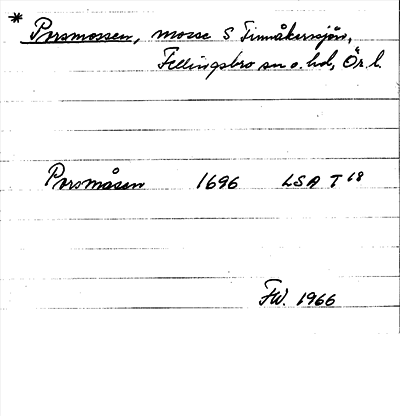 * Porsmossen, mosse S Finnåkerssjön,
Fellingsbro sn o. hd, Ör. l.
Porsmåsen 1696 LSA T 68
FW. 1966